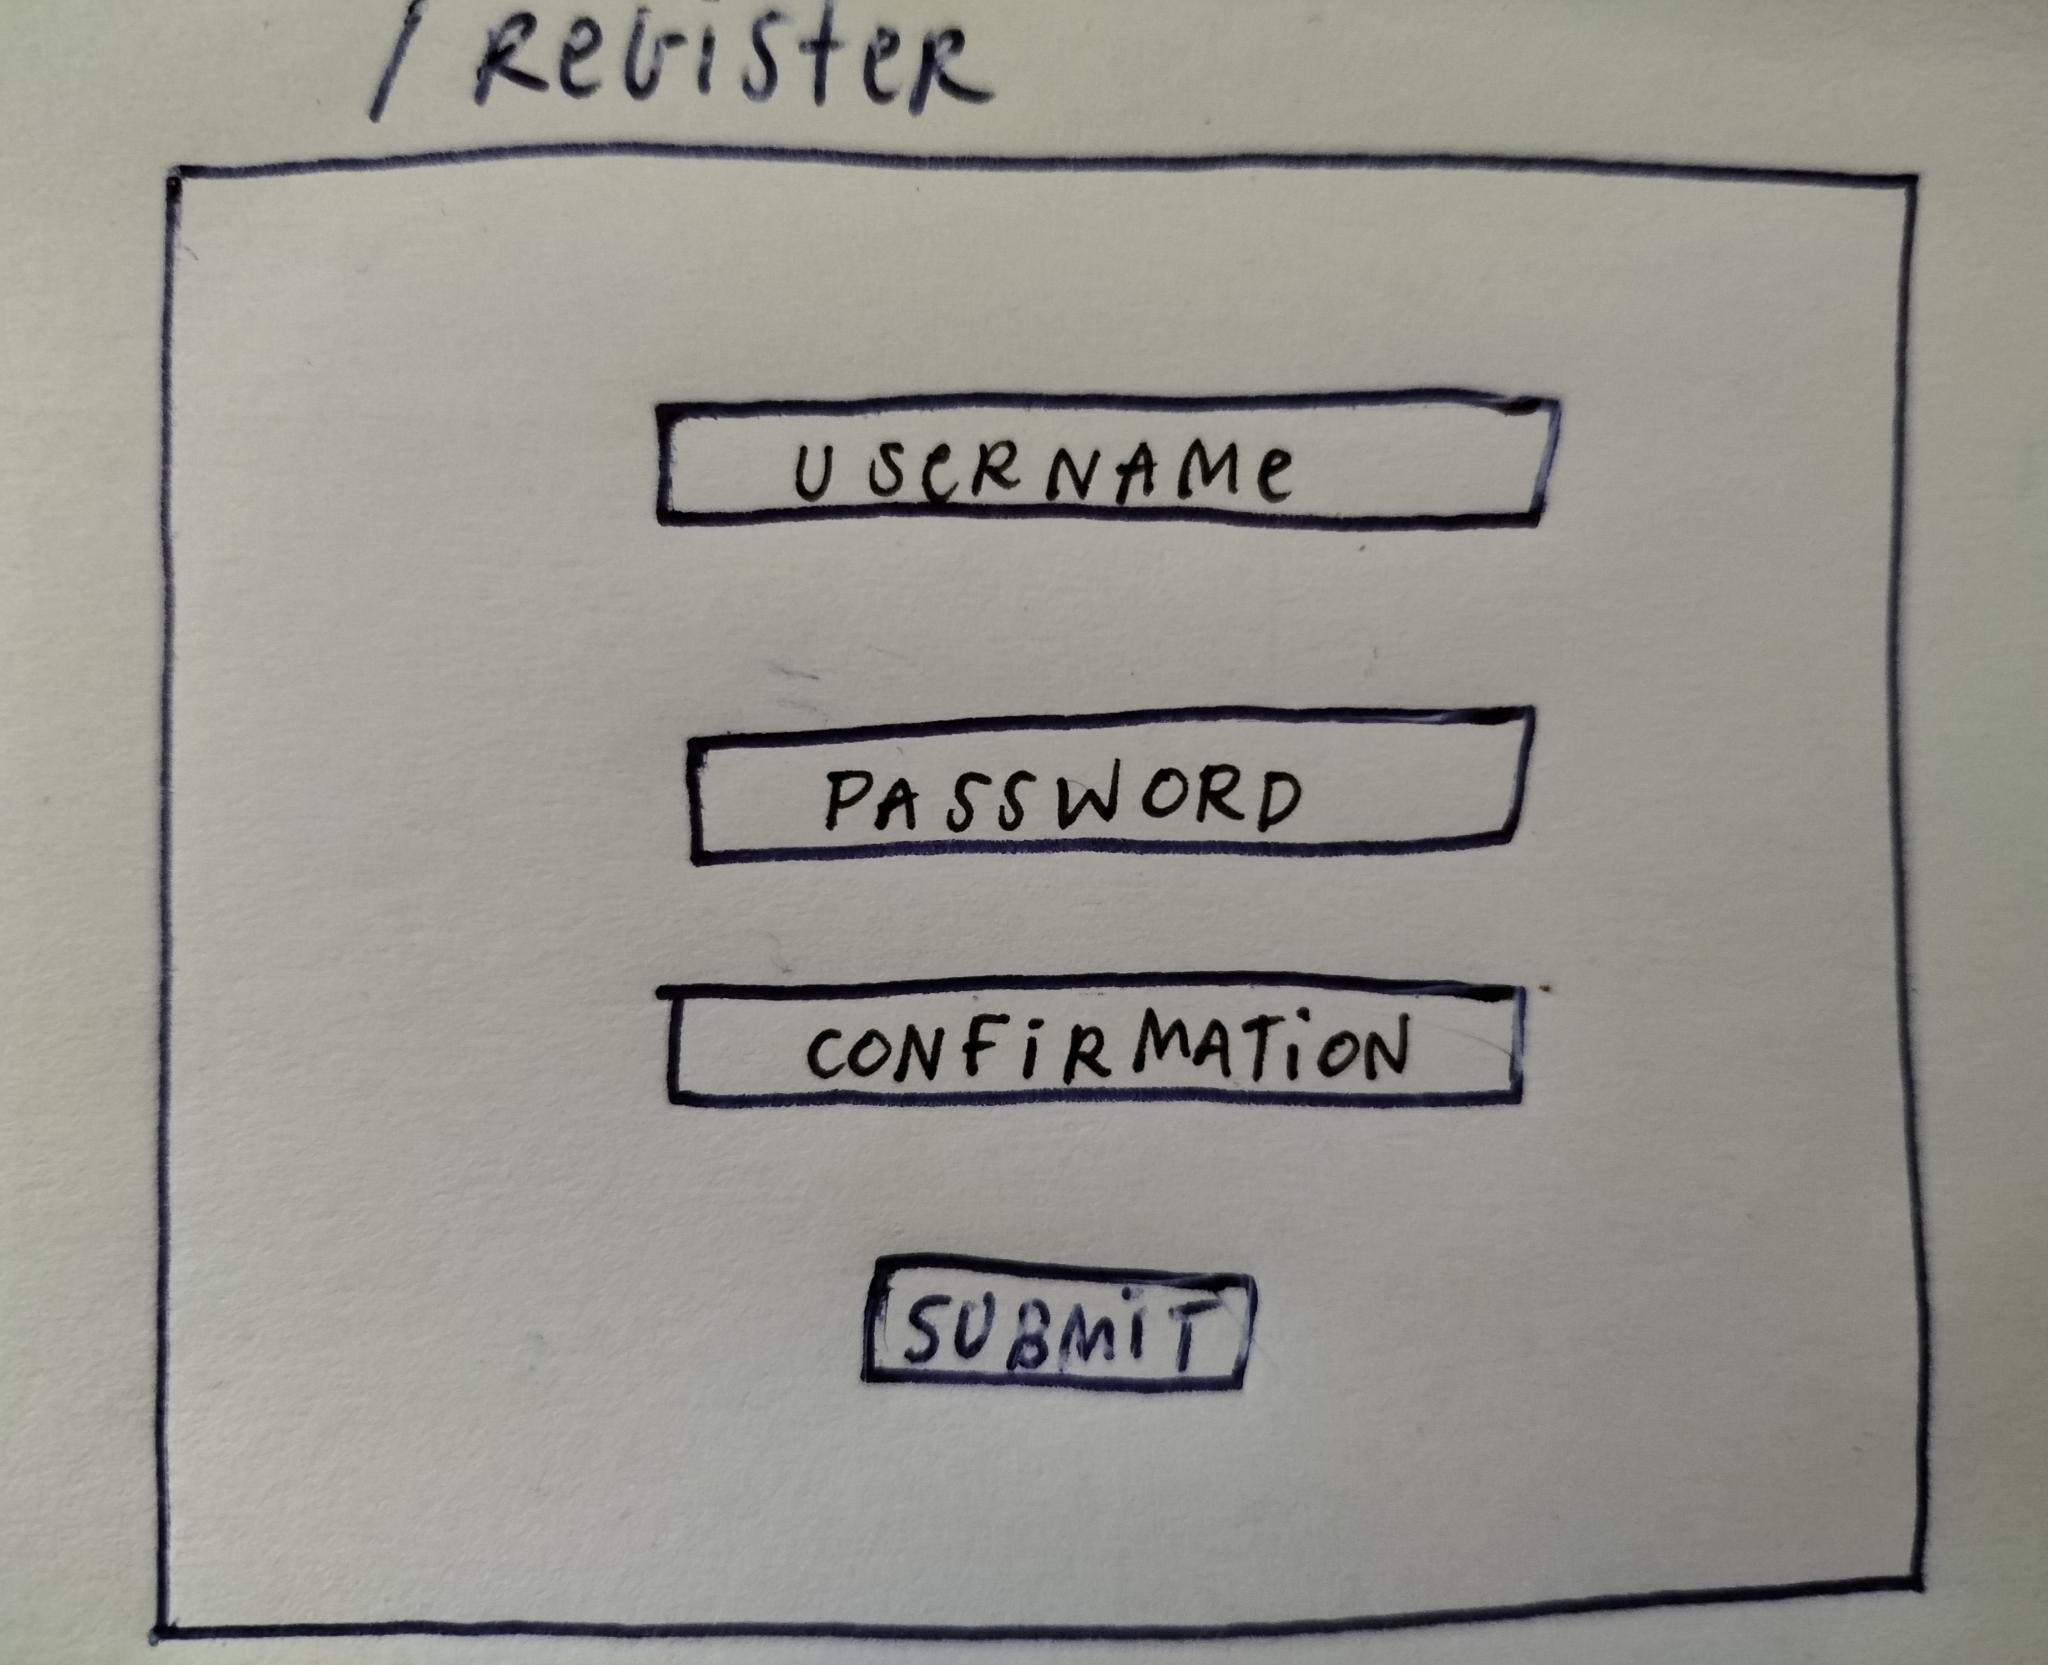 / Register
USeRNAMe
PASSWORD
CONFiRMATiON
SUBMiT